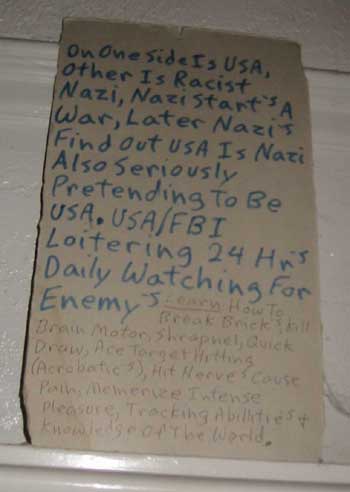 On One Side Is USA,
Other Is Racist
Nazi, Nazi Start's A
War, Later Nazi's
Find Out USA Is Nazi
Also Seriously
Pretending To Be
USA. USA/FBI
Loitering 24 Hr's
Daily Watching For
Enemy's Learn How To
Break Brick, Kill
Brain Motor, Shrapnel, Quick
Draw, Ace Target Hitting
(Acrobatic's), Hit Nerve's Cause
Pain, Memerize Intense
Pleasure, Tracking Abilitie's +
Knowledge Of The World.